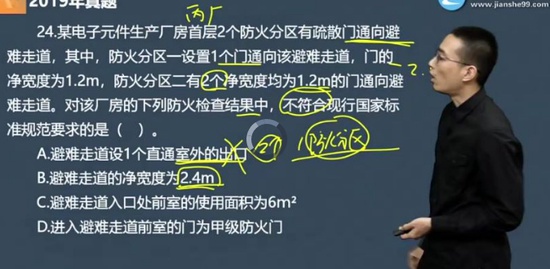 2019年真题
www.jianshe99.com
丙厂
24.某电子元件生产厂房首层2个防火分区有疏散门通向避
难走道，其中，防火分区一设置1个门通向该避难走道，门的
净宽度为1.2m，防火分区二有2个净宽度均为1.2m的门通向避
难走道。对该厂房的下列防火检查结果中，不符合现行国家标
准规范要求的是（ ）。
A.避难走道设1个直通室外的出口
2个
1防火分区
B.避难走道的净宽度为2.4m
C.避难走道入口处前室的使用面积为6m²
D.进入避难走道前室的门为甲级防火门